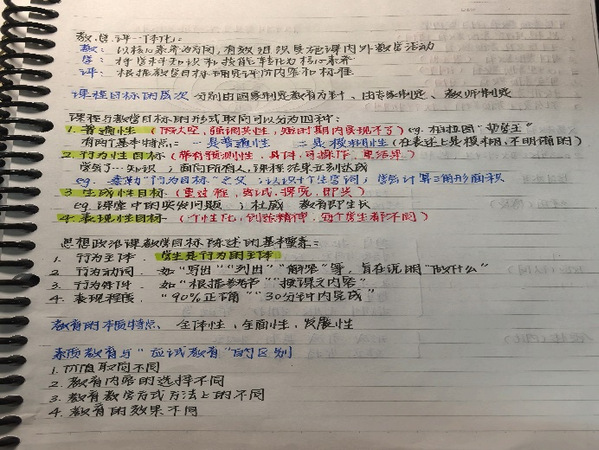 教、学、评一体化:
教: 以核心素养为导向,有效组织实施课内外教学活动
学: 将学科知识和技能转化为核心素养
评: 根据教学目标确定评价内容和标准
课程目标的层次 分别由国家制定教育方针、由专家制定、教师制定
课程与教学目标的形式取向可以分为四种:
1. 普遍性 (假大空,强调共性,短时期内实现不了) eg. 柏拉图"哲学王"
有两个基本特点: 一是普遍性 二是模糊性 (在表述上是模糊,不明确的)
2. 行为性目标 (带有预测性,具体,可操作,重结果)
学会了…知识;面向所有人,课程结束立刻达成
eg. 泰勒"行为目标"之父;认识十个生字词;学会计算三角形面积
3. 生成性目标 (重过程,尝试,探究,即兴)
eg. 课堂中的突发问题;杜威 教育即生长
4. 表现性目标 (个性化,创造精神,每个学生都不同)
思想政治课教学目标陈述的基本要素:
1. 行为主体. 学生是行为的主体
2. 行为动词. 如"写出""列出""解答"等,旨在说明"做什么"
3. 行为条件. 如"根据参考书""按课文内容"
4. 表现程度. "90%正确""30分钟内完成"
教育的本质特点: 全体性,全面性,发展性
素质教育与"应试教育"的区别
1. 价值取向不同
2. 教育内容的选择不同
3. 教育教学方式方法上的不同
4. 教育的效果不同